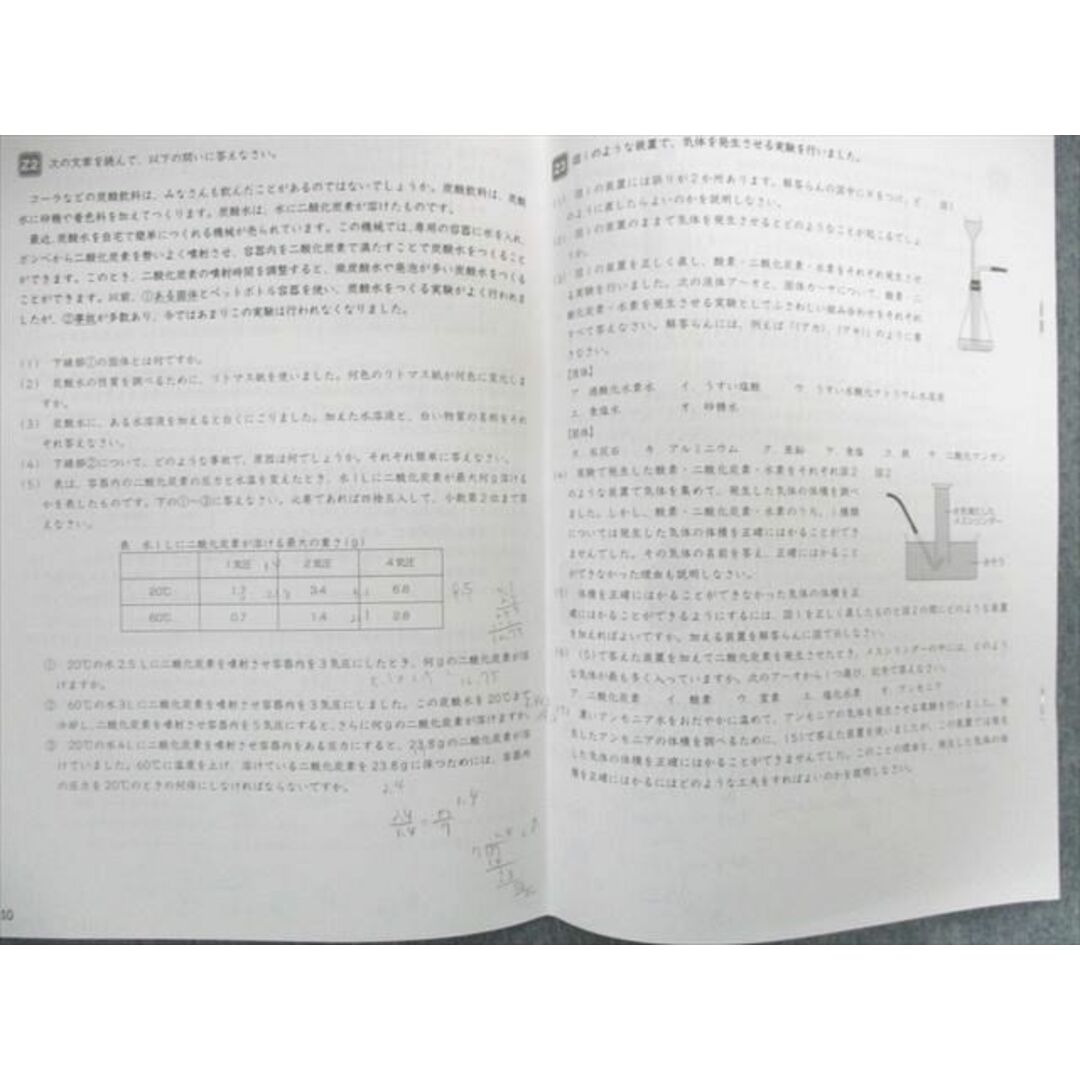 22 次の文章を読んで、以下の問いに答えなさい。
コーラなどの炭酸飲料は、みなさんも飲んだことがあるのではないでしょうか。炭酸飲料は、炭酸
水に砂糖や着色料を加えてつくります。炭酸水は、水に二酸化炭素が溶けたものです。
最近、炭酸水を自宅で簡単につくれる機械が売られています。この機械では、専用の容器に水を入れ、
ボンベから二酸化炭素を勢いよく噴射させ、容器内を二酸化炭素で満たすことで炭酸水をつくること
ができます。このとき、二酸化炭素の噴射時間を調整すると、微炭酸水や発泡が多い炭酸水をつくる
ことができます。以前、①ある固体とペットボトル容器を使い、炭酸水をつくる実験がよく行われま
したが、②事故が多数あり、今ではあまりこの実験は行われなくなりました。
(1) 下線部①の固体とは何ですか。
(2) 炭酸水の性質を調べるために、リトマス紙を使いました。何色のリトマス紙が何色に変化しま
すか。
(3) 炭酸水に、ある水溶液を加えると白くにごりました。加えた水溶液と、白い物質の名前をそれ
ぞれ答えなさい。
(4) 下線部②について、どのような事故で、原因は何でしょうか。それぞれ簡単に答えなさい。
(5) 表は、容器内の二酸化炭素の圧力と水温を変えたとき、水1Lに二酸化炭素が最大何g溶ける
かを表したものです。下の①～③に答えなさい。必要であれば四捨五入して、小数第2位まで答
えなさい。
表 水1Lに二酸化炭素が溶ける最大の重さ(g)
1気圧 2気圧 4気圧
20℃ 1.7 3.4 6.8
60℃ 0.7 1.4 2.8
① 20℃の水2.5Lに二酸化炭素を噴射させ容器内を3気圧にしたとき、何gの二酸化炭素が溶
けますか。
② 60℃の水3Lに二酸化炭素を噴射させ容器内を3気圧にしました。この炭酸水を20℃まで
冷却し、二酸化炭素を噴射させ容器内を5気圧にすると、さらに何gの二酸化炭素が溶けますか。
③ 20℃の水4Lに二酸化炭素を噴射させ容器内をある圧力にすると、23.8gの二酸化炭素が溶
けていました。60℃に温度を上げ、溶けている二酸化炭素を23.8gに保つためには、容器内
の圧力を20℃のときの何倍にしなければならないですか。
2.4
1.4
10
23 図1のような装置で、気体を発生させる実験を行いました。
(1) 図1の装置には誤りが2か所あります。解答らんの図中に×をつけ、ど
のように直したらよいのかを説明しなさい。
図1
(2) 図1の装置のままで気体を発生させるとどのようなことが起こるでしょ
うか。
(3) 図1の装置を正しく直し、酸素・二酸化炭素・水素をそれぞれ発生させ
る実験を行いました。次の液体ア～オと、固体カ～サについて、酸素・二
酸化炭素・水素を発生させる実験としてふさわしい組み合わせをそれぞれ
すべて答えなさい。解答らんには、例えば「(アカ)、(アキ)」のように書
きなさい。
【液体】
ア 過酸化水素水 イ．うすい塩酸 ウ．うすい水酸化ナトリウム水溶液
エ 食塩水 オ．砂糖水
【固体】
カ 石灰石 キ アルミニウム ク．亜鉛 ケ 食塩 コ 鉄 サ 二酸化マンガン
(4) 実験で発生した酸素・二酸化炭素・水素をそれぞれ図2
のような装置で気体を集めて、発生した気体の体積を調べ
ました。しかし、酸素・二酸化炭素・水素のうち、1種類
については発生した気体の体積を正確にはかることができ
ませんでした。その気体の名前を答え、正確にはかること
ができなかった理由も説明しなさい。
図2
水を満たした
メスシリンダー
水そう
(5) 体積を正確にはかることができなかった気体の体積を正
確にはかることができるようにするには、図1を正しく直したものと図2の間にどのような装置
を加えればよいですか。加える装置を解答らんに図で示しなさい。
(6) (5)で答えた装置を加えて二酸化炭素を発生させたとき、メスシリンダーの中には、どのよう
な気体が最も多く入っていますか。次のア～オから1つ選び、記号で答えなさい。
ア．二酸化炭素 イ．酸素 ウ 窒素 エ 塩化水素 オ．アンモニア
(7) 濃いアンモニア水をおだやかに温めて、アンモニアの気体を発生させる実験を行いました。発
生したアンモニアの体積を調べるために、(5)で答えた装置を使いましたが、この装置では発生
した気体の体積を正確にはかることができませんでした。このことの理由と、発生した気体の体
積を正確にはかるにはどのような工夫をすればよいのかを説明しなさい。